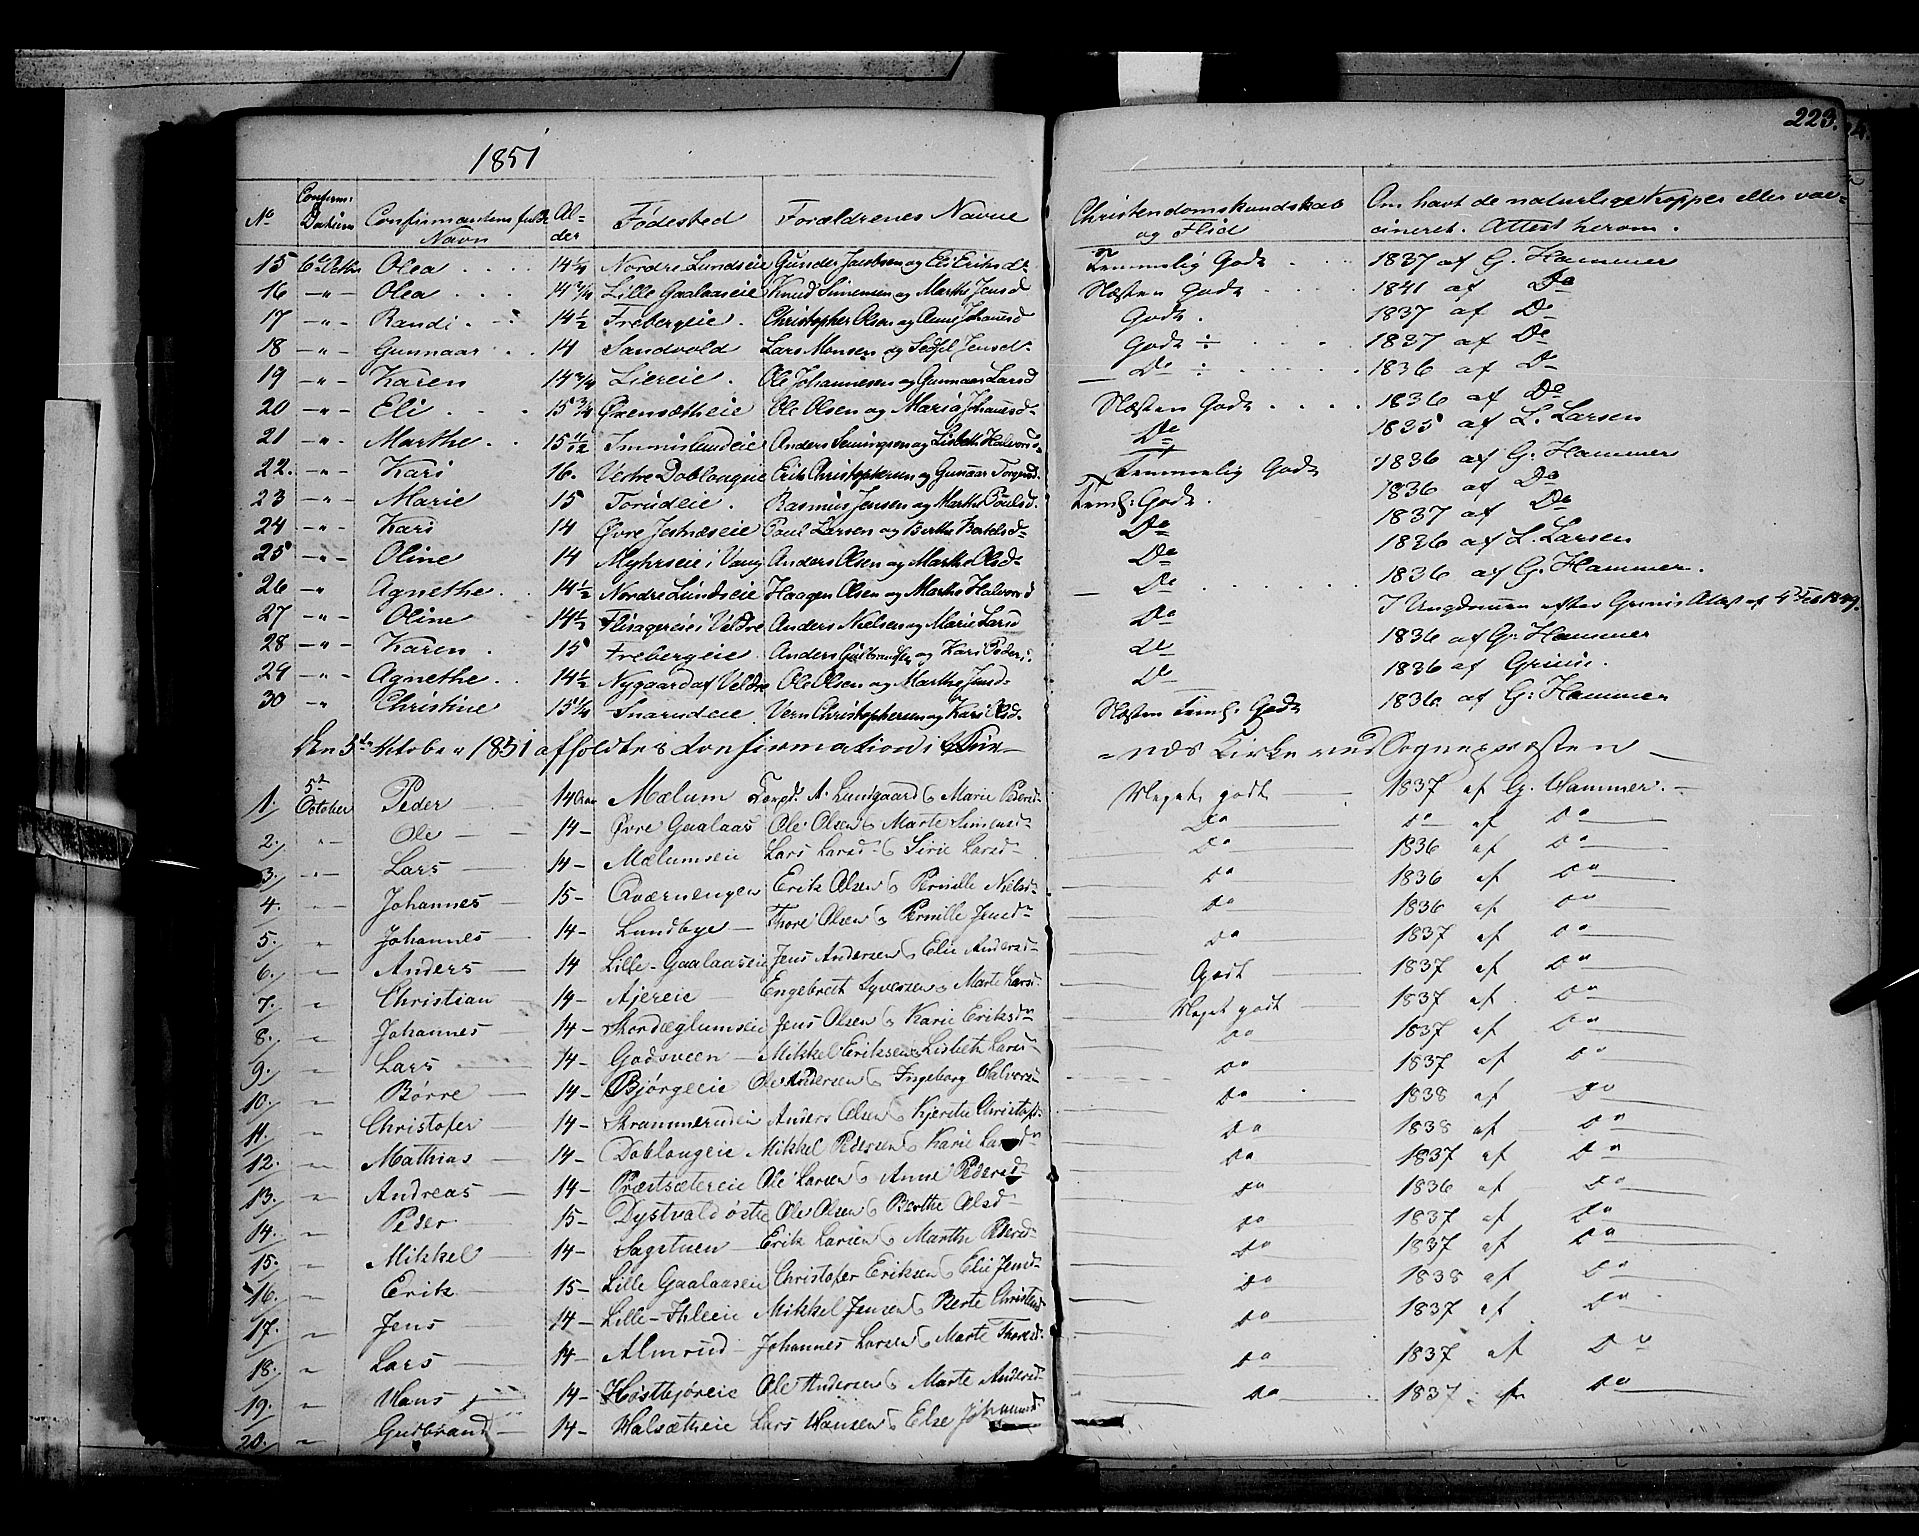 223.
1851
No Confirm: Datum Confirmantens fulde Navn Al-der Fødested Forældrenes Navne Christendomskundskab og Flid Om havt de naturlige Kopper eller vac-cineret. Attest herom.
15 6te Octbr Olea 14 1/4 Nordre Lundseie Gunder Jacobsen og Eli Eriksd. Temmelig Godt 1837 af G. Hammer
16 -"- Olea 14 3/4 Lille Gaalaaseie Knud Simensen og Marthe Jensd Næsten Godt 1841 af Do
17 -"- Randi 14 1/2 Frebergeie Christopher Olsen og Anne Johansd Godt 1837 af Do
18 -"- Gunnaar 14 Sandvold Lars Monsen og Jensd. Godt 1837 af Do
19 -"- Karen 14 3/4 Liereie Ole Johannesen og Gunnaar Larsd Do 1836 af Do
20 -"- Eli 15 3/4 Øxensætheie Ole Olsen og Maria Johansd. Næsten Godt 1836 af Do
21 -"- Marthe 15 11/12 Immislundeie Anders og Lisbeth Halvorsd. Do 1835 af L. Larsen
22. -"- Kari 16. Vestre Doblougeie Erik Christophersen og Gunnaar Temmelig Godt 1836 af G. Hammer
23 -"- Marie 15 Torudeie Rasmus Jensen og Marthe Poulsd. Teml: Godt 1836 af Do
24 -"- Kari 14 Øvre Jestnæseie Paul Larsen og Berthe Bertelsd. Do 1837 af Do
25 -"- Oline 14 Myhrseie i Vang Anders Olsen og Marthe Olsd. Do 1836 af L. Larsen
26 -"- Agnethe 14 1/2 Nordre Lundseie Haagen Olsen og Marthe Halvorsd Do 1836 af G. Hammer.
27 -"- Oline 14 1/2 Flisagereie i Veldre Anders Nielsen og Marie Larsd Do I Ungdommen efter Attest af Feb 1849.
28 -"- Karen 15 Frebergeie Anders Gulbrandsen og Kari Peders. do 1836 af G. Hammer
29 -"- Agnethe 14 1/2 Nygaard af Veldre Ole Olsen og Marthe Jensd. Do 1836 af Grinie.
30 -"- Christine 15 1/4 Snarudeie Christophersen og Kari Olsd. Næsten Teml: Godt 1836 af G. Hammer
Den 5te October 1851 afholdtes Confirmation i Fur-næs Kirke ved Sognepræsten
1. 5te October Peder 14 Aar Mælum A. Lundgaard & Marie Pedersd. Meget godt 1837 af G. Hammer.
2. -"- Ole 14- Øvre Gaalaas Ole Olsen & Marte Simensd. Do do af Do
3. -"- Lars 14- Mælumseie Lars Larsd. & Sirie Larsd. Do 1836 af Do
4. -"- Johannes 15- Qværnengen Erik Olsen & Pernille Nielsd. Do 1836 af Do
5. " Johannes 14- Lundbye Thore Olsen & Pernille Jensd. Do 1836 af Do
6. " Anders 14 Lille-Gaalaaseie Jens Andersen & Elie Andersd. Do 1837 af Do
7. " Christian 14- Ajereie Engebreth Syversen & Marte Larsd. Godt 1837 af Do
8. " Johannes 14- Jens Olsen & Karie Eriksdr Meget godt 1837 af Do
9. " Lars 14- Godsveen Mikkel Eriksen & Lisbeth Larsd. Do 1837 af Do
10. " Børre 14- Bjørgeeie Ole Andersen & Ingeborg Halvorsd. Do 1837 af Do
11. " Christofer 14- Strammerudeie Anders Olsen & Kjerstie Christofd. Do 1838 af Do
12. " Mathias 14- Doblougeie Mikkel Pedersen & Karie Larsdr Do 1838 af Do
13. " Andreas 14- Præstsætereie Ole Larsen & Anne Pedersd. Do 1837 af Do
14. " Peder 15- Dystvald østre Ole Olsen & Berthe Olsd. Do 1836 af Do
15. " Mikkel 14- Sagstuen Erik Larsen & Marthe Pedersd. Do 1837 af Do
16. " Erik 15- Lille Gaalaaseie Christofer Eriksen & Elie Jensd. Do 1837 af Do
17. " Jens 14- Lille-Ihleeie Mikkel Jensen & Berte Christensd. Do 1838 af Do
18. " Lars 14- Almrud Johannes Larsen & Marte Thoresd. Do 1837 af Do
19. " Hans 14- Ole Andersen & Marte Andersd. Do 1837 af Do
20. " Gudbrand 14- Halsætheie Lars Hansen & Else Johannesd Do 1837 af Do